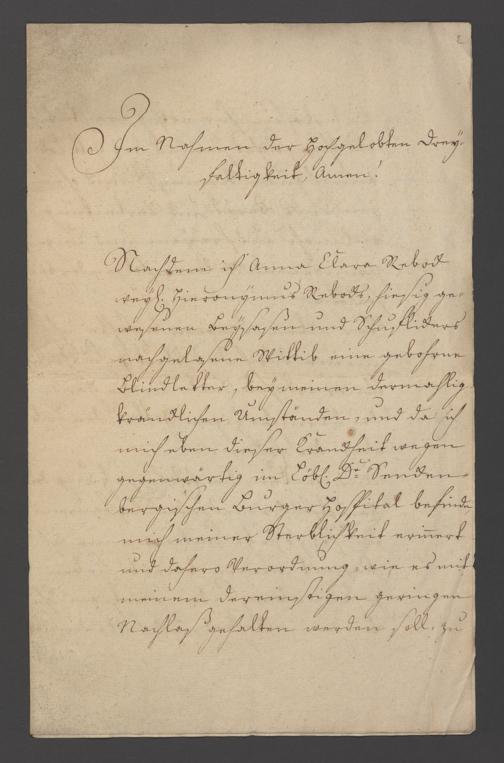 2
Im Nahmen der Hochgelobten Drey-
faltigkeit, Amen!
Nachdeme ich Anna Clara Rebod
weyl: Hieronymus Rebods, hiesig ge-
wesenen Beysasen und Schuflickers
nachgelasene Wittib eine gebohrne
Blindletter, bey meinen dermahlig
kräncklichen Umständen, und da ich
mich eben dieser Kranckheit wegen
gegenwärtig im Löbl. Dr. Sencken-
bergischen Burger Hospital befinde
mich meiner Sterblichkeit erinnert
und dahero Verordnung, wie es mit
meinem dereinstigen geringen
Nachlaß gehalten werden soll, zu